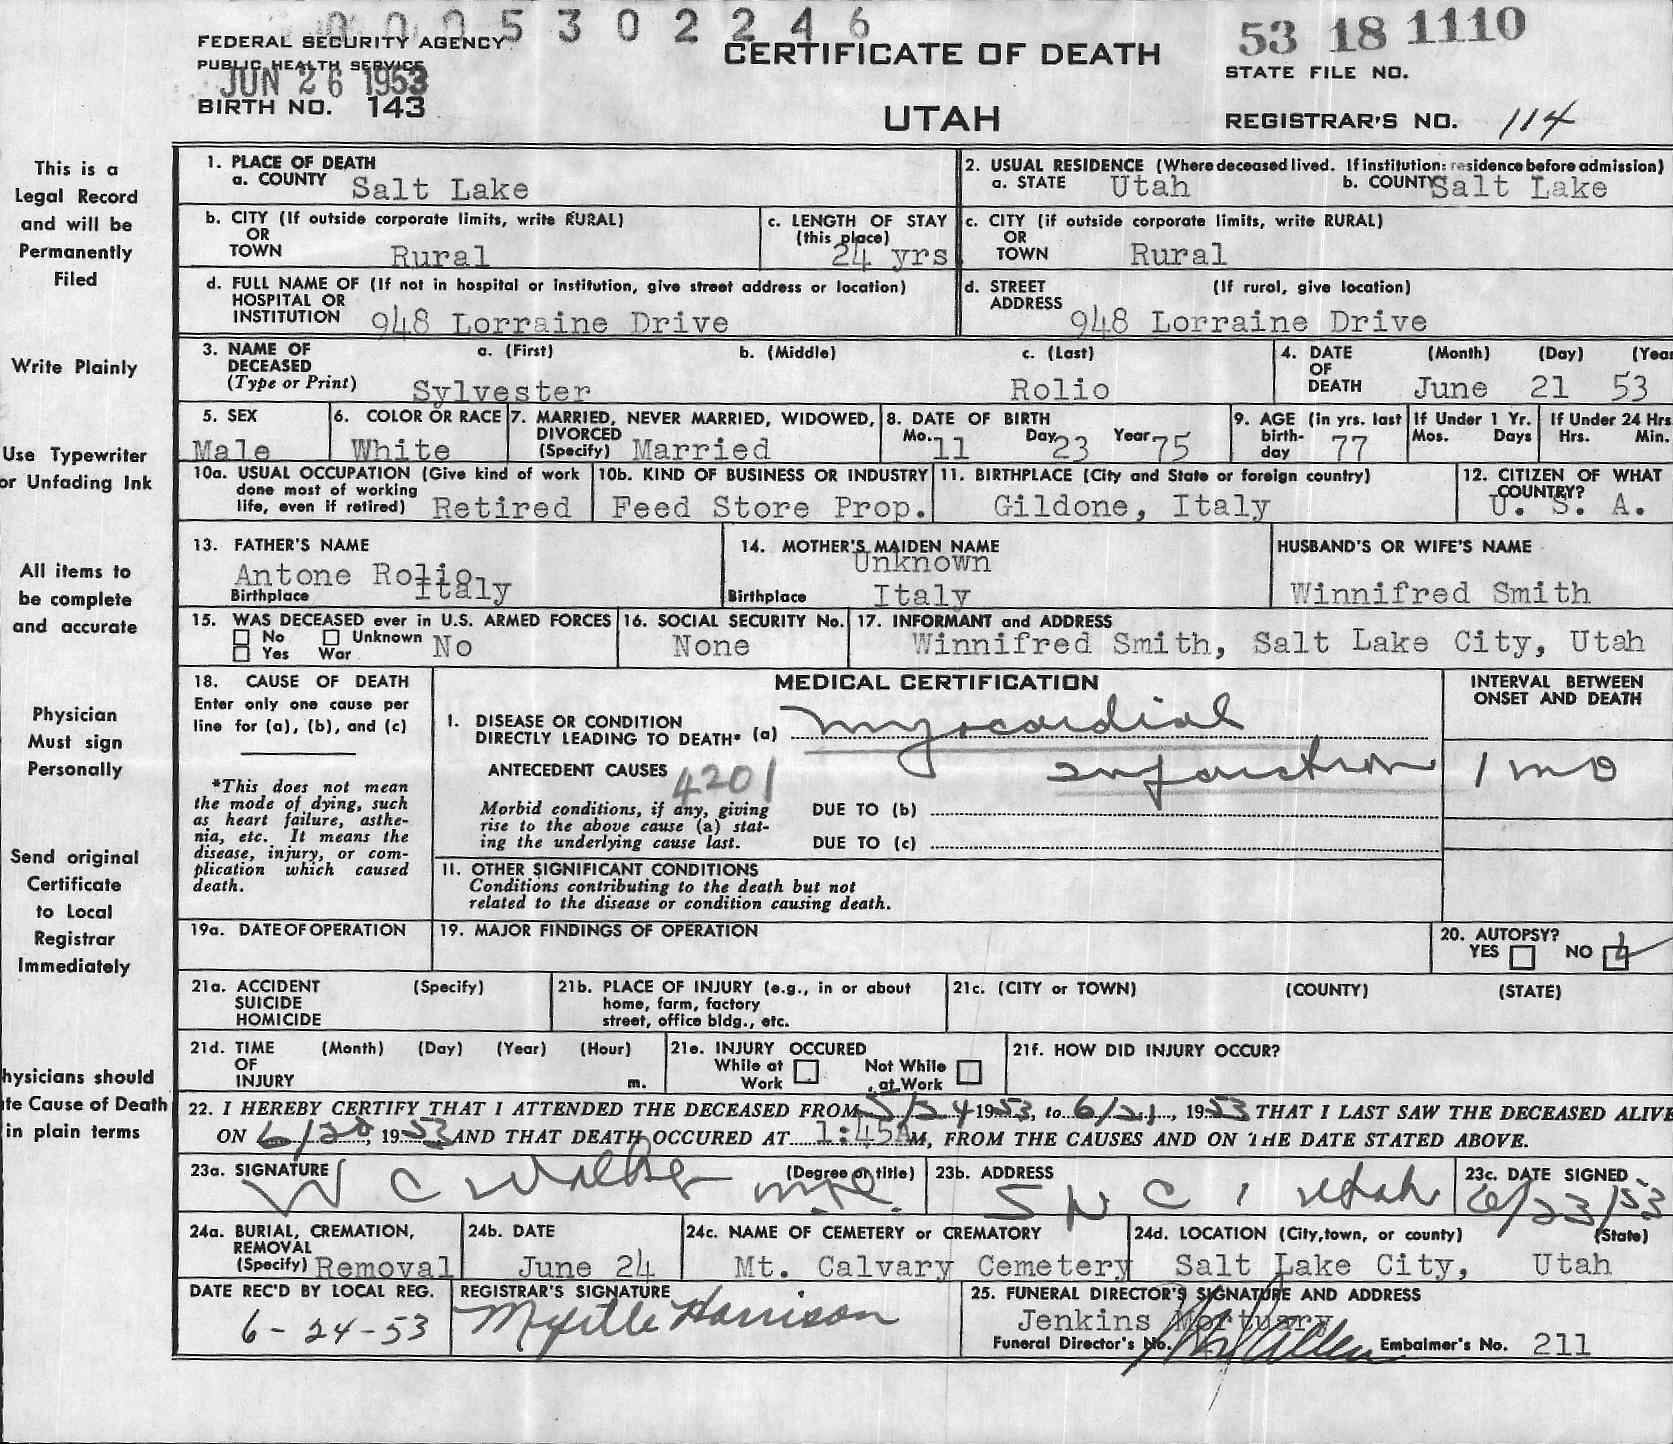 0005302246
FEDERAL SECURITY AGENCY
PUBLIC HEALTH SERVICE
JUN 26 1953
BIRTH NO. 143
CERTIFICATE OF DEATH
UTAH
53 18 1110
STATE FILE NO.
REGISTRAR'S NO. 114
This is a
Legal Record
and will be
Permanently
Filed
Write Plainly
Use Typewriter
or Unfading Ink
All items to
be complete
and accurate
Physician
Must sign
Personally
Send original
Certificate
to Local
Registrar
Immediately
hysicians should
te Cause of Death
in plain terms
1. PLACE OF DEATH
a. COUNTY Salt Lake
2. USUAL RESIDENCE (Where deceased lived. If institution: residence before admission)
a. STATE Utah b. COUNTY Salt Lake
b. CITY (If outside corporate limits, write RURAL)
OR
TOWN Rural
c. LENGTH OF STAY
(this place)
24 yrs
c. CITY (if outside corporate limits, write RURAL)
OR
TOWN Rural
d. FULL NAME OF (If not in hospital or institution, give street address or location)
HOSPITAL OR
INSTITUTION 948 Lorraine Drive
d. STREET (If rural, give location)
ADDRESS 948 Lorraine Drive
3. NAME OF a. (First) b. (Middle) c. (Last)
DECEASED
(Type or Print) Sylvester Rolio
4. DATE (Month) (Day) (Year
OF
DEATH June 21 53
5. SEX
Male
6. COLOR OR RACE
White
7. MARRIED, NEVER MARRIED, WIDOWED,
DIVORCED
(Specify) Married
8. DATE OF BIRTH
Mo. 11 Day 23 Year 75
9. AGE (in yrs. last
birth-
day 77
If Under 1 Yr.
Mos. Days
If Under 24 Hrs
Hrs. Min.
10a. USUAL OCCUPATION (Give kind of work
done most of working
life, even if retired) Retired
10b. KIND OF BUSINESS OR INDUSTRY
Feed Store Prop.
11. BIRTHPLACE (City and State or foreign country)
Gildone, Italy
12. CITIZEN OF WHAT
COUNTRY?
U. S. A.
13. FATHER'S NAME
Antone Rolio
Birthplace Italy
14. MOTHER'S MAIDEN NAME
Unknown
Birthplace Italy
HUSBAND'S OR WIFE'S NAME
Winnifred Smith
15. WAS DECEASED ever in U.S. ARMED FORCES
No Unknown No
Yes War
16. SOCIAL SECURITY No.
None
17. INFORMANT and ADDRESS
Winnifred Smith, Salt Lake City, Utah
18. CAUSE OF DEATH
Enter only one cause per
line for (a), (b), and (c)
*This does not mean
the mode of dying, such
as heart failure, asthe-
nia, etc. It means the
disease, injury, or com-
plication which caused
death.
MEDICAL CERTIFICATION
INTERVAL BETWEEN
ONSET AND DEATH
I. DISEASE OR CONDITION
DIRECTLY LEADING TO DEATH* (a) myocardial
infarction 1 mo
ANTECEDENT CAUSES 4201
Morbid conditions, if any, giving
rise to the above cause (a) stat-
ing the underlying cause last.
DUE TO (b)
DUE TO (c)
II. OTHER SIGNIFICANT CONDITIONS
Conditions contributing to the death but not
related to the disease or condition causing death.
19a. DATE OF OPERATION
19. MAJOR FINDINGS OF OPERATION
20. AUTOPSY?
YES NO
21a. ACCIDENT (Specify)
SUICIDE
HOMICIDE
21b. PLACE OF INJURY (e.g., in or about
home, farm, factory
street, office bldg., etc.
21c. (CITY or TOWN) (COUNTY) (STATE)
21d. TIME (Month) (Day) (Year) (Hour)
OF
INJURY m.
21e. INJURY OCCURED
While at Not While
Work at Work
21f. HOW DID INJURY OCCUR?
22. I HEREBY CERTIFY THAT I ATTENDED THE DECEASED FROM 5/24 1953, to 6/21, 1953 THAT I LAST SAW THE DECEASED ALIVE
ON 6/20, 1953 AND THAT DEATH OCCURED AT 1:45AM, FROM THE CAUSES AND ON THE DATE STATED ABOVE.
23a. SIGNATURE (Degree or title)
W C Walker M.D.
23b. ADDRESS
Utah
23c. DATE SIGNED
6/23/53
24a. BURIAL, CREMATION,
REMOVAL
(Specify) Removal
24b. DATE
June 24
24c. NAME OF CEMETERY or CREMATORY
Mt. Calvary Cemetery
24d. LOCATION (City, town, or county) (State)
Salt Lake City, Utah
DATE REC'D BY LOCAL REG.
6-24-53
REGISTRAR'S SIGNATURE
Myrtle Harrison
25. FUNERAL DIRECTOR'S SIGNATURE AND ADDRESS
Jenkins Mortuary
Funeral Director's No. Embalmer's No. 211